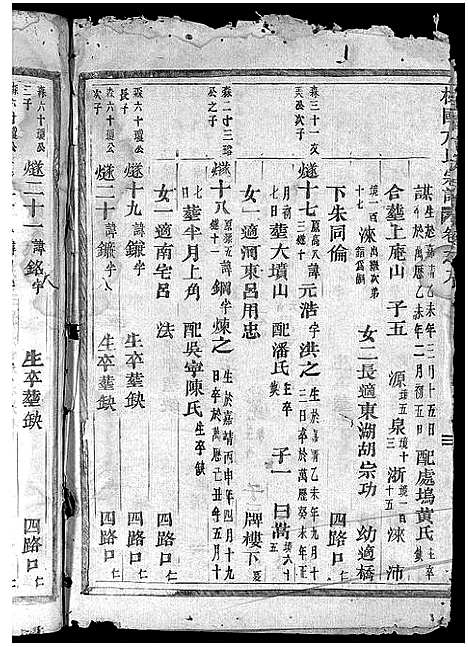 謀 生於嘉靖乙未年三月十五日 配處塢黃氏 生卒缺
合塟上庵山 子五 源 泉 浙 涞 沛
女二長適東湖胡宗功 幼適橋
下朱同倫 四路口
森三十一文公次子 燧十七 諱元浩字洪之 生於嘉靖乙未年九月十三日卒於萬歷癸未年三月
七日 塟大墳山 配潘氏 生卒缺 子一 曰
女一適河東呂用忠 牌樓下
森二十三璐公之子 燧十八 諱鋼字煉之 生於嘉靖丙申年四月十九日卒於萬歷己丑年五月十
七日 塟半月上角 配吳寧陳氏 生卒缺
女一適南宅呂 法 四路口 仁
森六十瓊公長子 燧十九 諱鑛字 生卒塟缺 四路口 仁
森六十瓊公次子 燧二十 諱鐮字 生卒塟缺 四路口 仁
森六十瓊公三子 燧二十一 諱銘字 生卒塟缺 四路口 仁